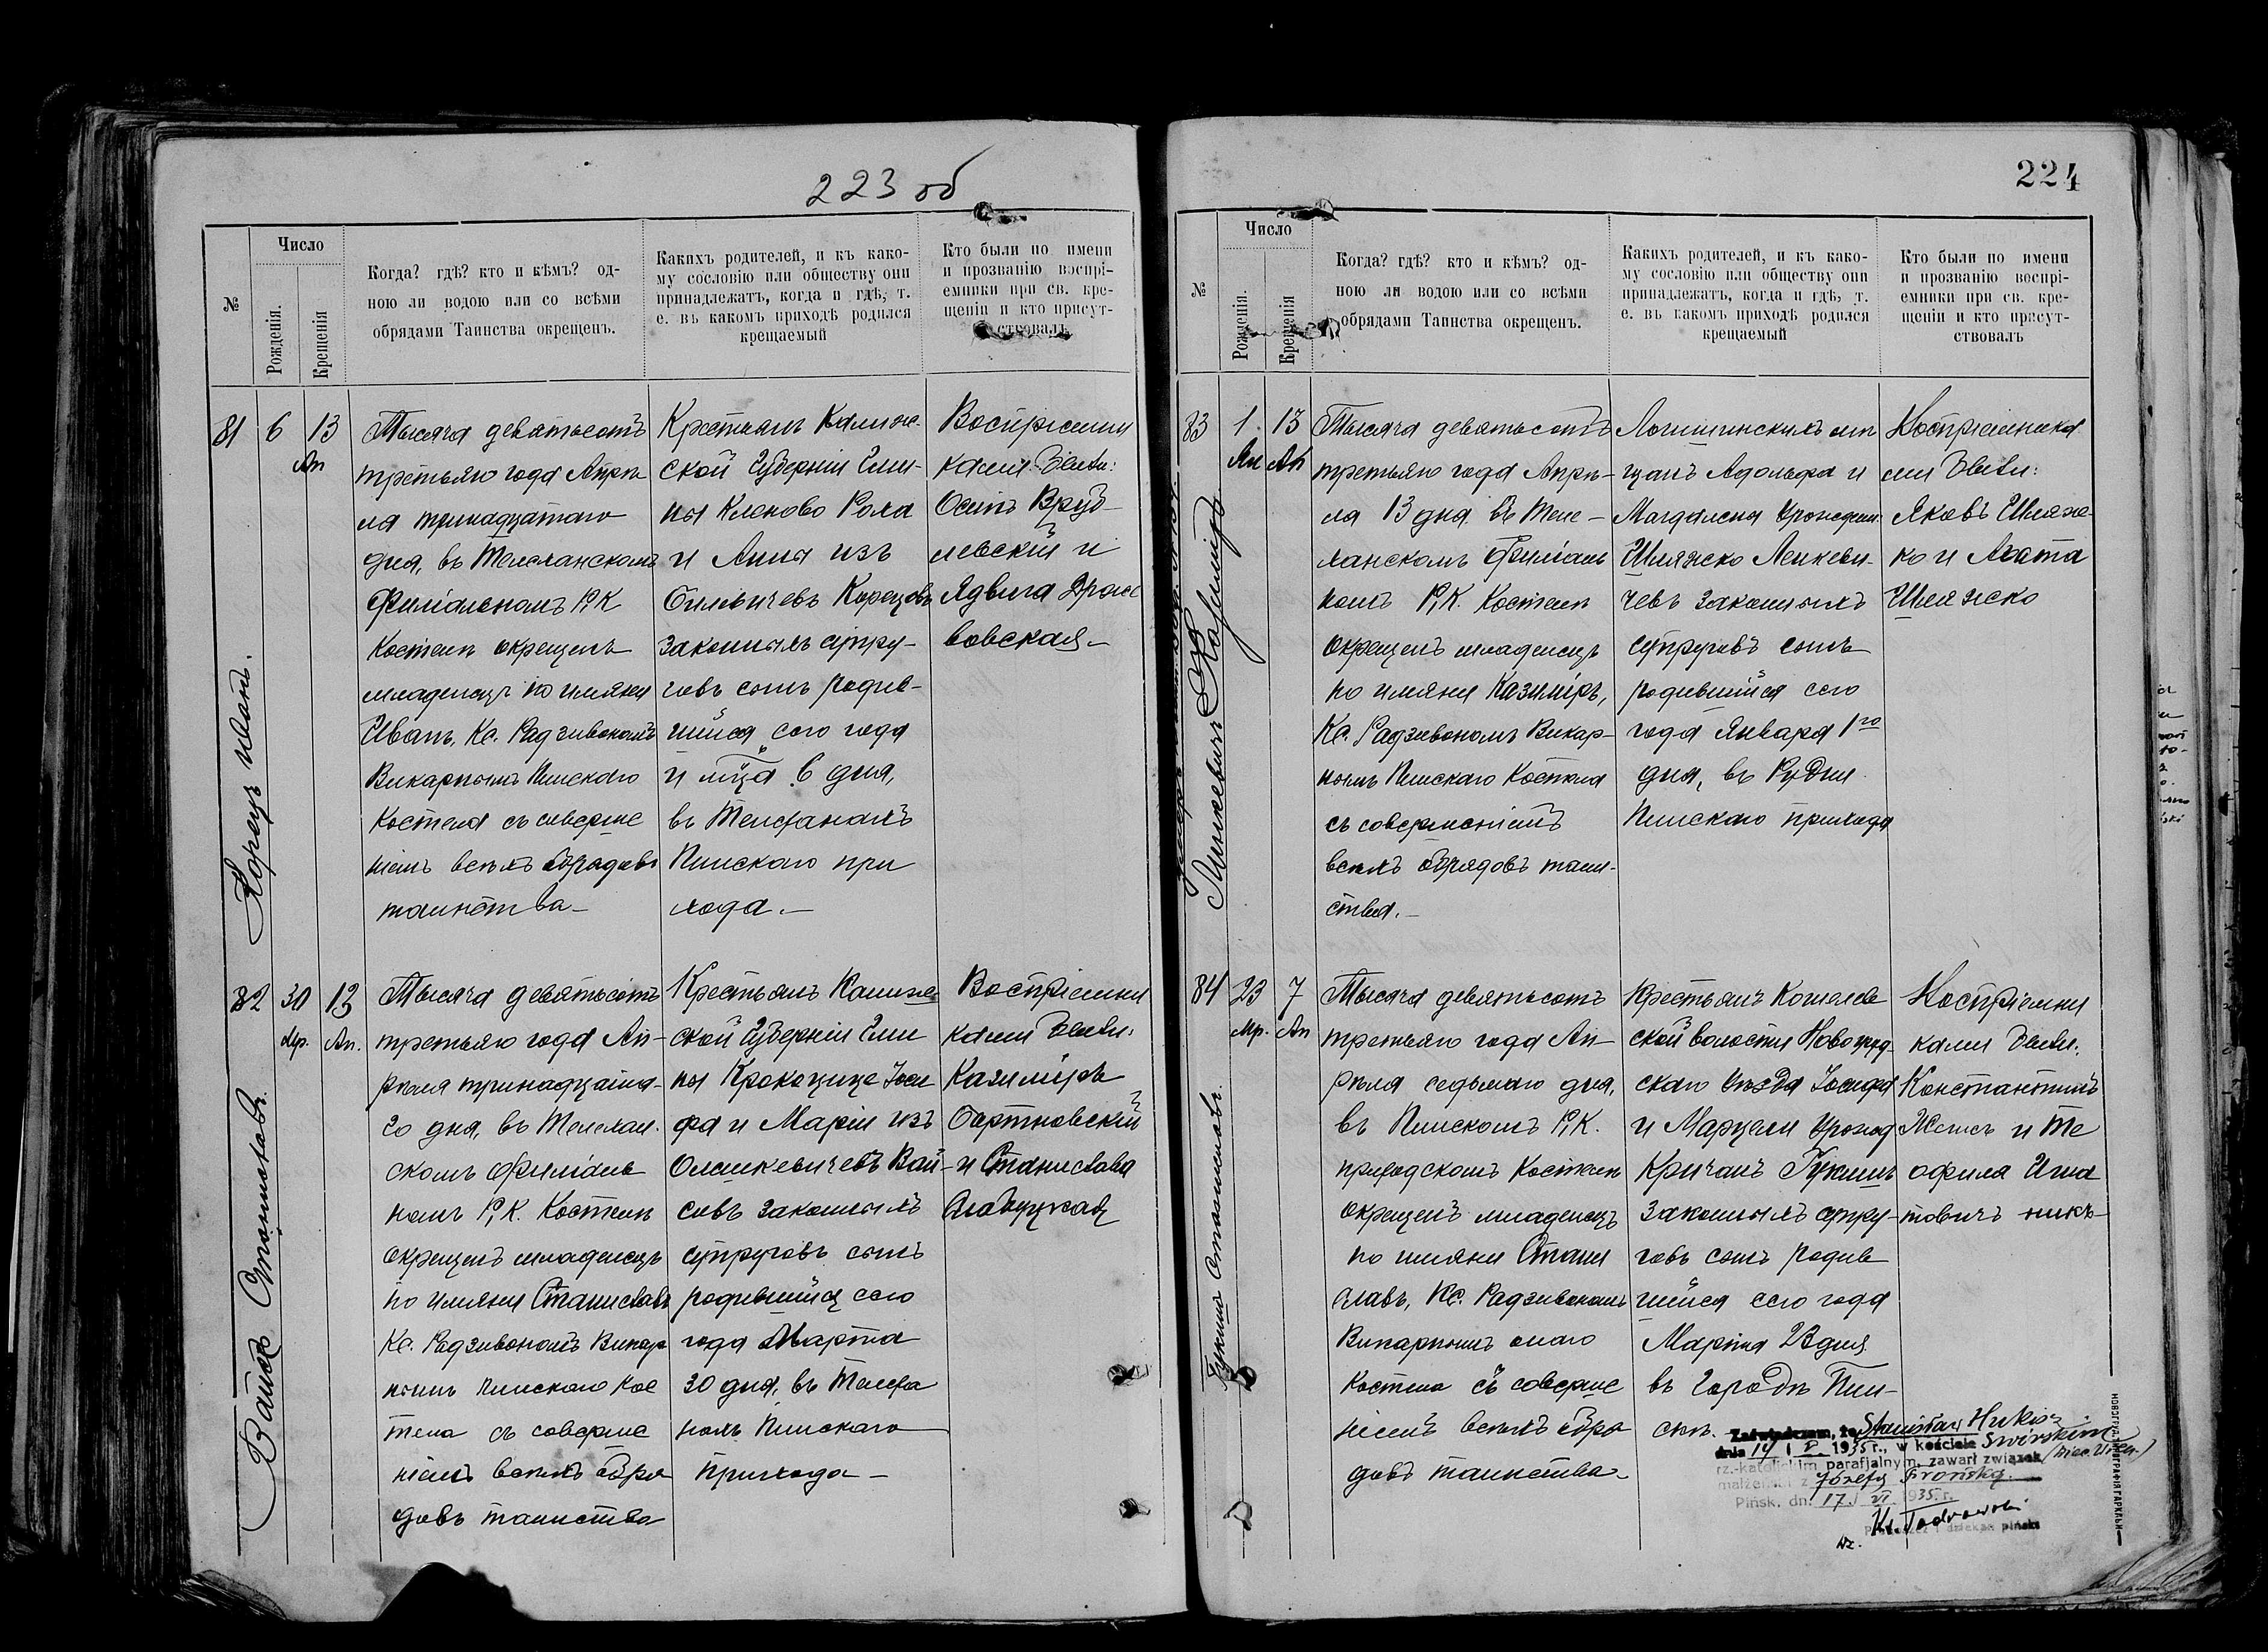 223 об
№
Число
Рожденія.
Крещенія
Когда? гдѣ? кто и кѣмъ? од-
ною ли водою или со всѣми
обрядами Таинства окрещенъ.
Какихъ родителей, и къ како-
му сословію или обществу они
принадлежатъ, когда и гдѣ, т.
е. въ какомъ приходѣ родился
крещаемый
Кто были по имени
и прозванію воспрі-
емники при св. кре-
щеніи и кто присут-
ствовалъ
81
6
13
Ап
Корецъ Иванъ.
Тысяча девятьсотъ
третьяго года Апрѣ
ля тринадцатаго
дня, въ Телеханскомъ
Филіальномъ Р, К
Костелѣ окрещенъ
младенецъ по имяни
Иванъ, Кс. Радзивономъ
Викарнымъ Пинскаго
Костела съ соверше
ніемъ всѣхъ обрядовъ
таинства
Крестьянъ Калиш
ской Губерніи Гми-
ны Кленово Роха
и Анны изъ
Корецовъ
законныхъ супру-
говъ сынъ родив-
шійся сего года
и мца 6 дня,
въ Телеханахъ
Пинскаго при
хода.
Воспріемни
ками были:
Осипъ Вруб-
левскій и
Ядвига
вовская
82
30
Мр.
13
Ап.
Станиславъ.
Тысяча девятьсотъ
третьяго года Ап-
рѣля тринадцата-
го дня, въ Телехан-
скомъ Филіаль
номъ Р, К. Костелѣ
окрещенъ младенецъ
по имяни Станиславъ
Кс. Радзивономъ Викар
нымъ Пинскаго Кос
тела съ соверше
ніемъ всѣхъ обря
довъ таинства
Крестьянъ Калиш
ской Губерніи Гми
ны Крокоцице Іоси
фа и Маріи изъ
Олешкевичевъ Вай-
совъ законныхъ
супруговъ сынъ
родившійся сего
года Марта
30 дня, въ Телеха
нахъ Пинскаго
прихода
Воспріемни
ками были:
Казиміръ
и Станислава
224
№
Число
Рожденія.
Крещенія
Когда? гдѣ? кто и кѣмъ? од-
ною ли водою или со всѣми
обрядами Таинства окрещенъ.
Какихъ родителей, и къ како-
му сословію или обществу они
принадлежатъ, когда и гдѣ, т.
е. въ какомъ приходѣ родился
крещаемый
Кто были по имени
и прозванію воспрі-
емники при св. кре-
щеніи и кто присут-
ствовалъ
83
1
Ян
13
Ап
Казиміръ
Тысяча девятьсотъ
третьяго года Апрѣ-
ля 13 дня въ Теле-
ханскомъ Филіаль
номъ Р, К. Костелѣ
окрещенъ младенецъ
по имяни Казиміръ,
Кс. Радзивономъ Викар-
нымъ Пинскаго Костела
съ совершеніемъ
всѣхъ обрядовъ таин-
ства.
Логишинскихъ мѣ
щанъ Адольфа и
Магдалены урожден.
Шляжко Ленкеви-
чевъ законныхъ
супруговъ сынъ
родившійся сего
года Января 1го
дня, въ Рудни
Пинскаго прихода
Воспріемника
ми были:
Яковъ Шляж-
ко и Агата
Шляжко
84
23
Мр.
7
Ап
Гукишъ Станиславъ.
Тысяча девятьсотъ
третьяго года Ап-
рѣля седьмаго дня,
въ Пинскомъ Р, К.
приходскомъ Костелѣ
окрещенъ младенецъ
по имяни Стани
славъ, Кс. Радзивономъ
Викарнымъ онаго
Костела съ соверше
ніемъ всѣхъ обря
довъ таинства
Крестьянъ Кошелев
ской волости Новогруд-
скаго уѣзда Іосифа
и Марцели урожд
Кричанъ Гукишъ
законныхъ супру-
говъ сынъ родив
шійся сего года
Марта 23 дня
въ городѣ Пин-
скѣ.
Воспріемни
ками были:
Константинъ
и Те
офиля Игна
товичъ
Zaświadczam, że Stanisław Hukisz
dnia 14 / 1935 r., w kościele Swirskim
rz.-katolickim parafjalnym, zawarł związek
małżeński z Józefą
Pińsk, dn. 17 / VI 1935 r.
dziekan piński